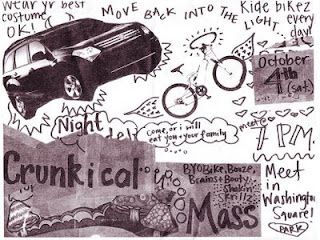 Wear yr best
costume
OK!
MOVE BACK INTO THE LIGHT
Ride bikez
every
day!
October
4th (sat.)
Night
come, or i will
eat you + your family
meet @
7 P.M.
Crunkical
BYOBike, Booze,
Brains + Booty
Shakin'
Skrillz
Mass
Meet
in
Washington
Square!
PARK